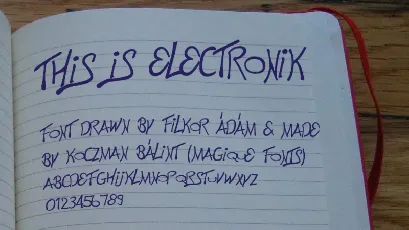 THIS IS ELECTRONIK
FONT DRAWN BY FILKOR ÁDÁM & MADE
BY KOCZMAN BÁLINT (MAGIQUE FONTS)
ABCDEFGHIJKLMNOPQRSTUVWXYZ
0123456789